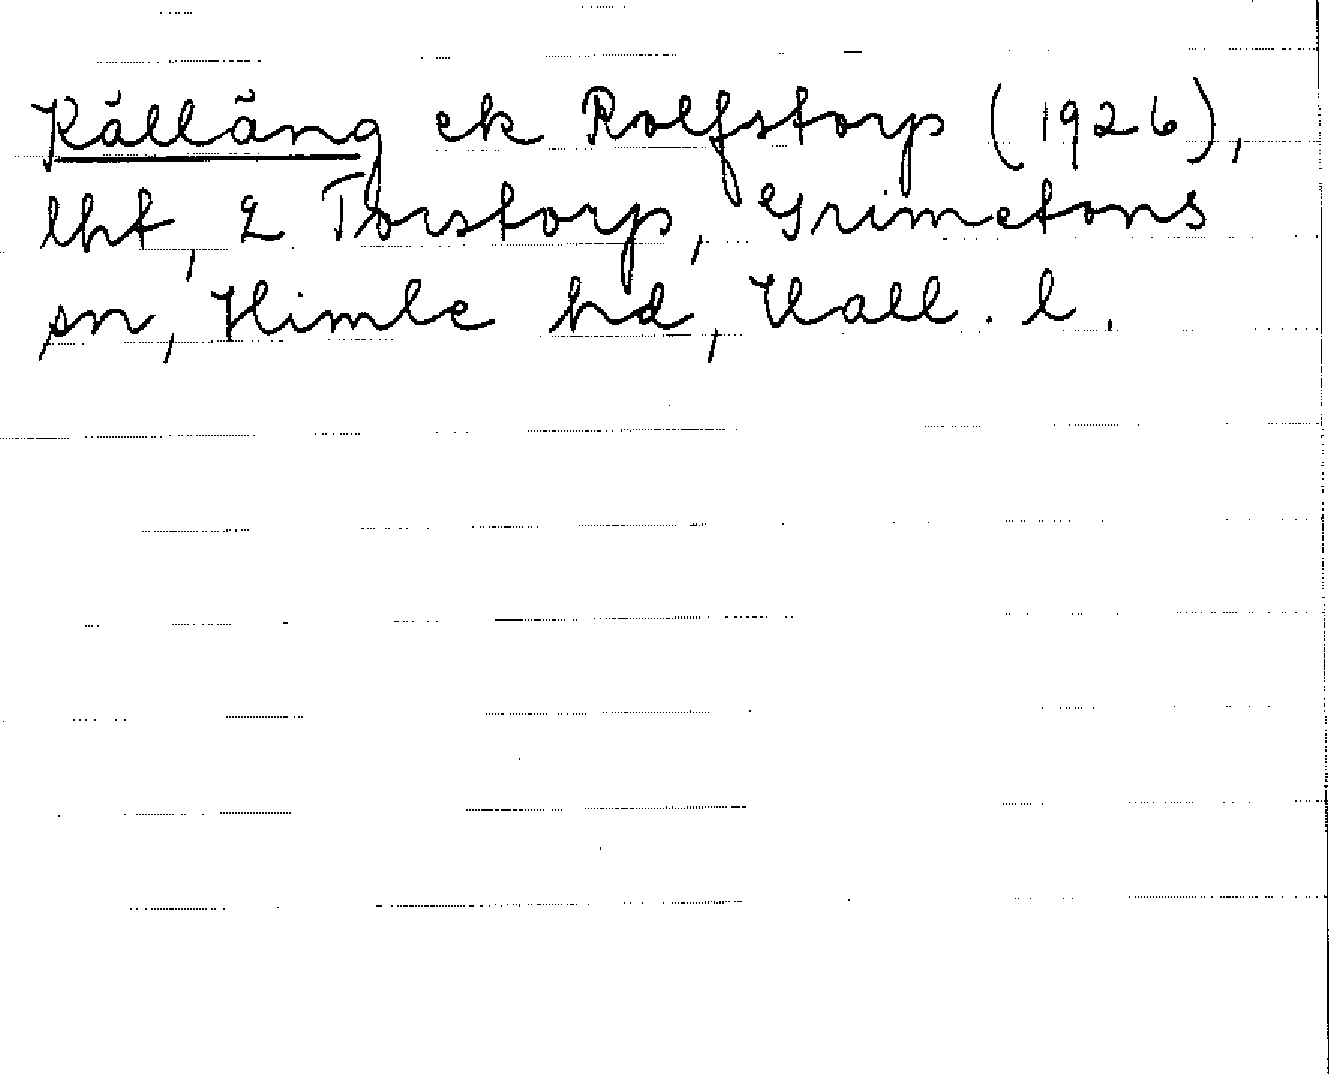 Källäng ek Rolfstorp (1926),
lht, 2 Torstorp, Grimetons
sn, Himle hd, Hall. l.